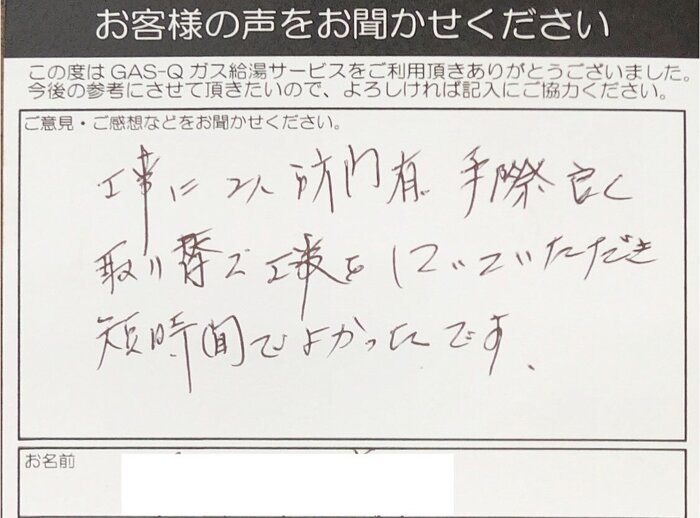 お客様の声をお聞かせください
この度はGAS-Qガス給湯サービスをご利用頂きありがとうございました。
今後の参考にさせて頂きたいので、よろしければ記入にご協力ください。
ご意見・ご感想などをお聞かせください。
工事に2人訪問有 手際良く
取り替え工事をしていていただき
短時間でよかったです。
お名前